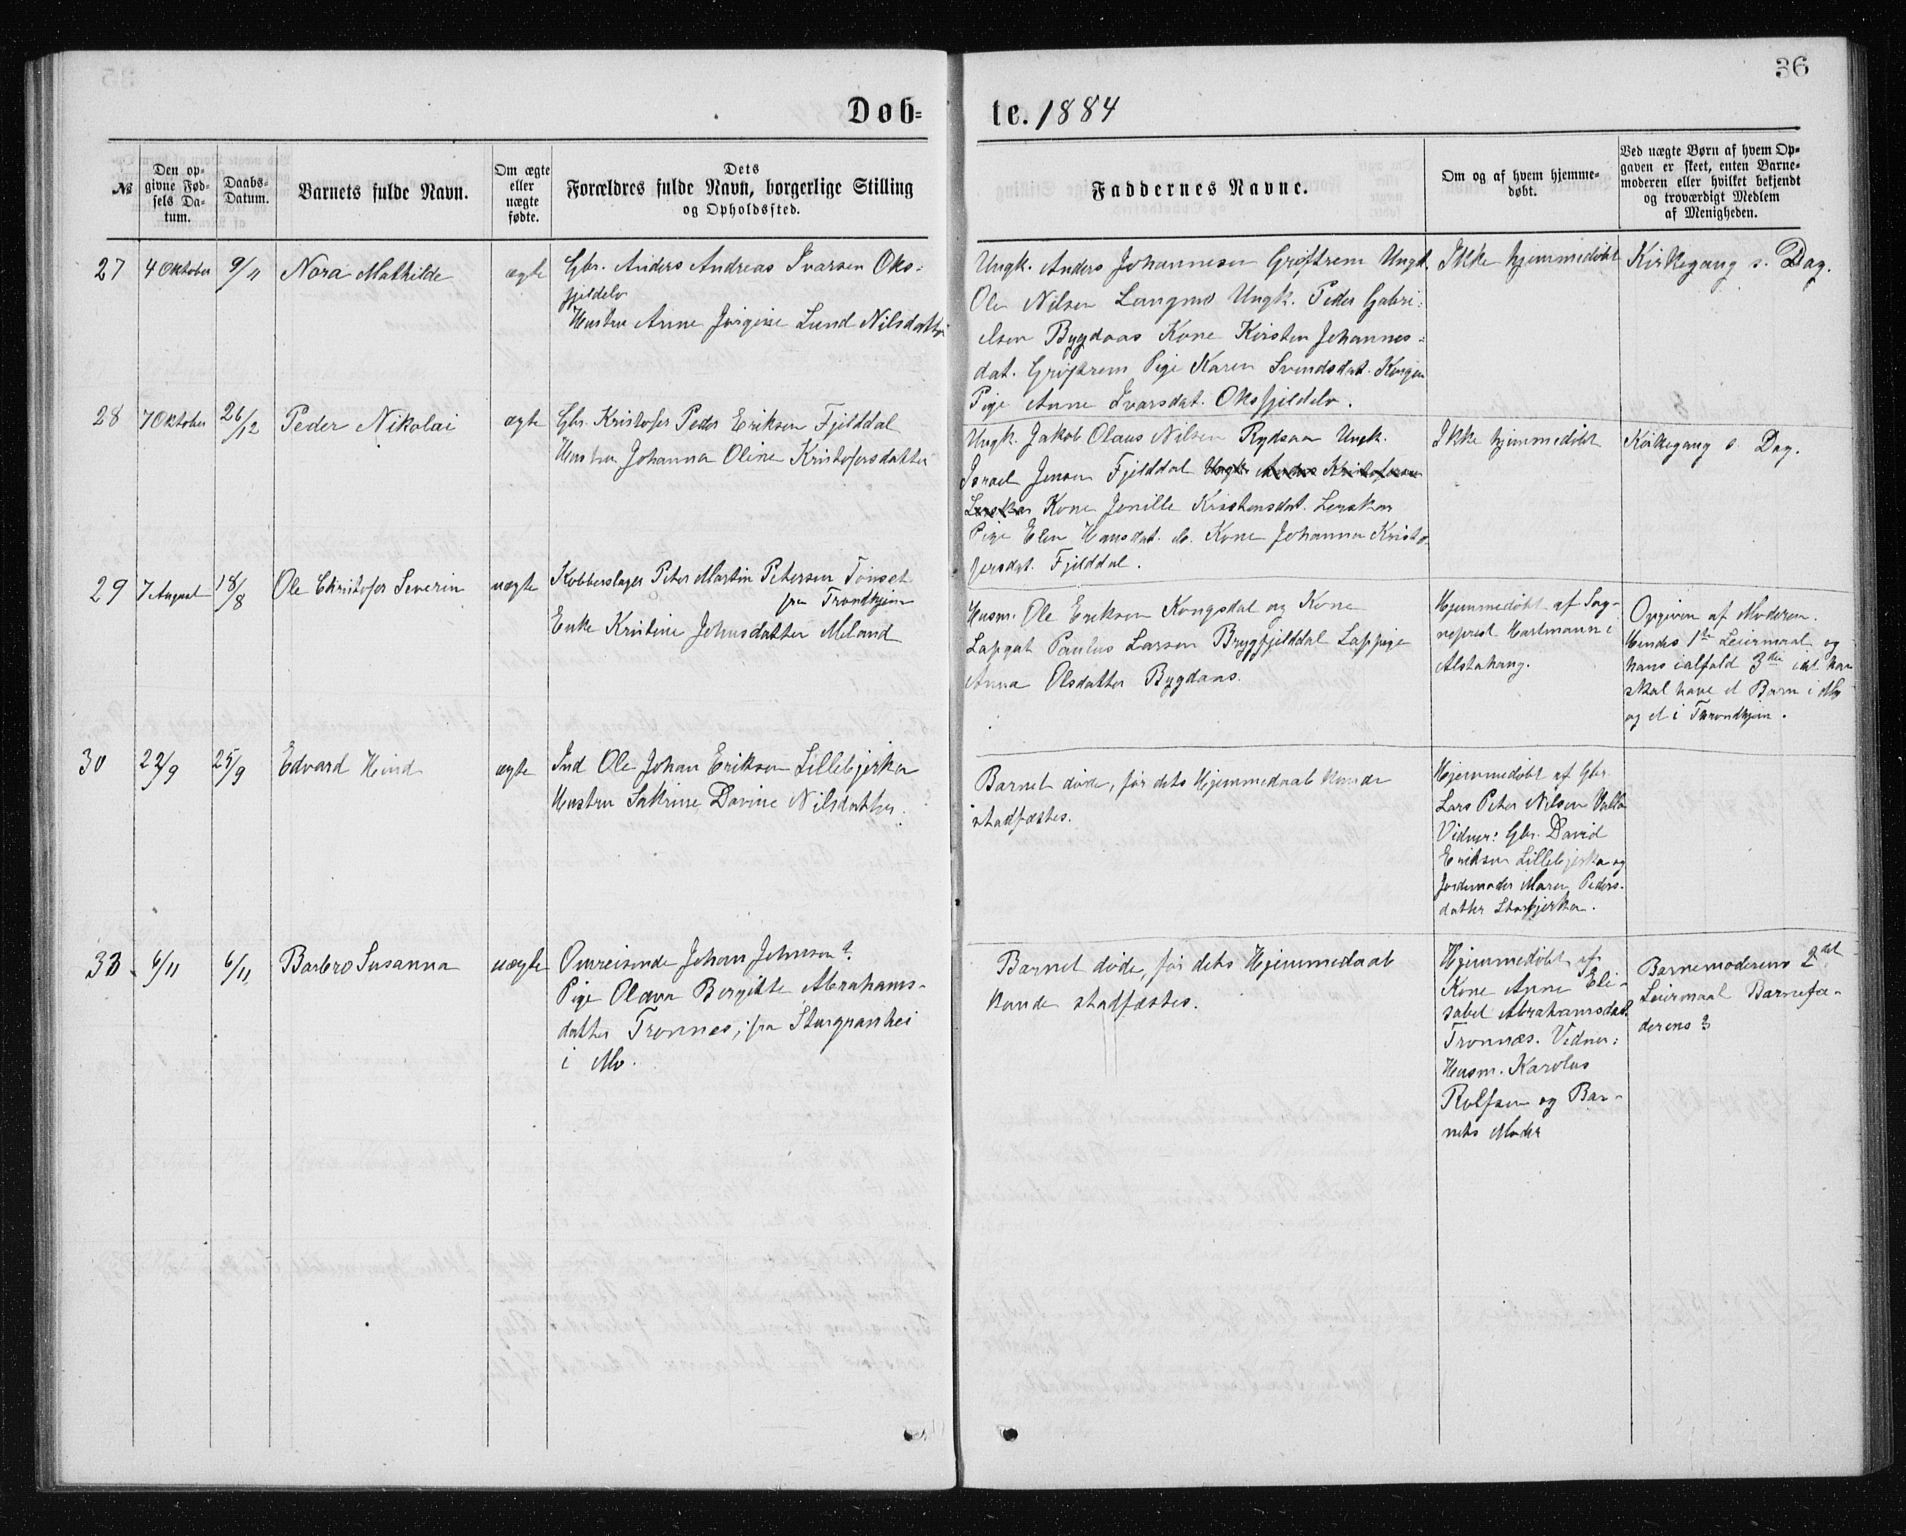 36
Døb-
te. 1884
№
Den op-
givne Fød-
sels Da-
tum.
Daabs-
Datum.
Barnets fulde Navn.
Om ægte
eller
uægte
fødte.
Dets
Forældres fulde Navn, borgerlige Stilling
og Opholdssted.
Faddernes Navne.
Om og af hvem hjemme-
døbt.
Ved uægte Børn af hvem Op-
gaven er skeet, enten Barne-
moderen eller hvilket bekjendt
og troværdigt Medlem
af Menigheden.
27
4 Oktober
9/11
Nora Mathilde
ægte
Gbr. Anders Andreas Ivarsen Oks-
fjeldelv
Hustru Anne Jørgine Lund Nilsdatter
Ungk. Anders Johannesen Grøftrem Ungk.
Ole Nilsen Langmo Ungk. Peder Gabri-
elsen Bygdaas Kone Kirsten Johannes-
dat. Grøftrem Pige Karen Svendsdat.
Pige Anne Ivarsdat. Oksfjeldelv.
Ikke hjemmedøbt
Kirkegang s. Dag.
28
7 Oktober
26/12
Peder Nikolai
ægte
Gbr. Kristofer Peder Eriksen Fjelddal
Hustru Johanna Oline Kristofersdatter
Ungk. Jakob Olaus Nilsen Rydsaa Ungk.
Israel Jensen Fjelddal Ungk. Anders Kristofersen
Leirskar Kone Jenille Kristensdat. Lerskar
Pige Elen Hansdat. do. Kone Johanna Kristo-
fersdat. Fjelddal.
Ikke hjemmedøbt
Kirkegang s. Dag.
29
7 August
18/8
Ole Christofer Severin
uægte
Kobberslager Peter Martin Petersen Tønset
fra Trondhjem
Enke Kristine Johnsdatter Meland
Husm. Ole Eriksen Kongsdal og Kone
Lapgut Paulus Larsen Brygfjelddal Lappige
Anna Olsdatter Bygdaas.
Hjemmedøbt af Sog-
neprest Hartmann i
Alstahaug.
Opgiven af Moderen.
Hendes 1ste Leiermaal og
hans ialfald 3die idet han
skal have et Barn i Mo
og et i Throndhjem.
30
22/9
25/9
Edvard Hind
ægte
Ind Ole Johan Eriksen Lillebjerka
Hustru Sakrine Davine Nilsdatter.
Barnet døde, før dets Hjemmedaab kunde
stadfæstes.
Hjemmedøbt af Gbr.
Lars Peter Nilsen Valla
Vidner: Gbr. David
Eriksen Lillebjerka og
Jordemoder Maren Peders-
datter Storbjerka.
33
6/11
6/11
Barbro Susanna
uægte
Omreisende Johan Johnsen?
Pige Olava Bergitte Abrahams-
datter Tronnes, fra
i Mo.
Barnet døde, før dets Hjemmedaab
kunde stadfæstes.
Hjemmedøbt af
Kone Anne Eli-
sabet Abrahamsdat.
Tronnæs. Vidner:
Husm. Karolus
Rolfsen og Bar-
nets Moder
Barnemoderens 2det
Leiermaal Barnefa-
derens ?